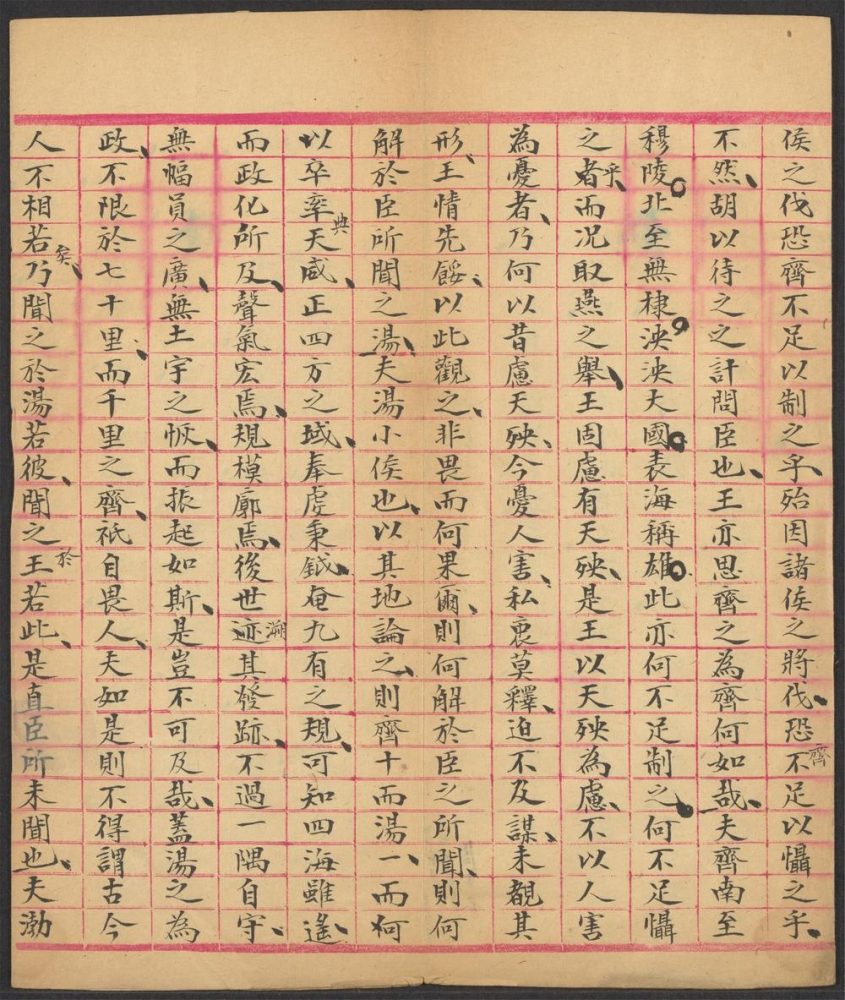 侯之伐恐齊不足以制之乎殆因諸侯之將伐恐齊不足以懾之乎
不然胡以待之之計問臣也王亦思齊之為齊何如哉夫齊南至
穆陵北至無棣泱泱大國表海稱雄此亦何不足制之何不足懾
之者乎而況取燕之舉王固慮有天殃是王以天殃為慮不以人害
為憂者乃何以昔慮天殃今憂人害私衷莫釋迫不及謀未覩其
形王情先餒以此觀之非畏而何果爾則何解於臣之所聞則何
解於臣所聞之湯夫湯小侯也以其地論之則齊十而湯一而何
以卒率典天威正四方之域奉虔秉鉞奄九有之規可知四海雖遙
而政化所及聲氣宏焉規模廓焉後世迹溯其發跡不過一隅自守
無幅員之廣無土宇之恢而振起如斯是豈不可及哉蓋湯之為
政不限於七十里而千里之齊祇自畏人夫如是則不得謂古今
人不相若矣乃聞之於湯若彼聞之於王若此是直臣所未聞也夫渤